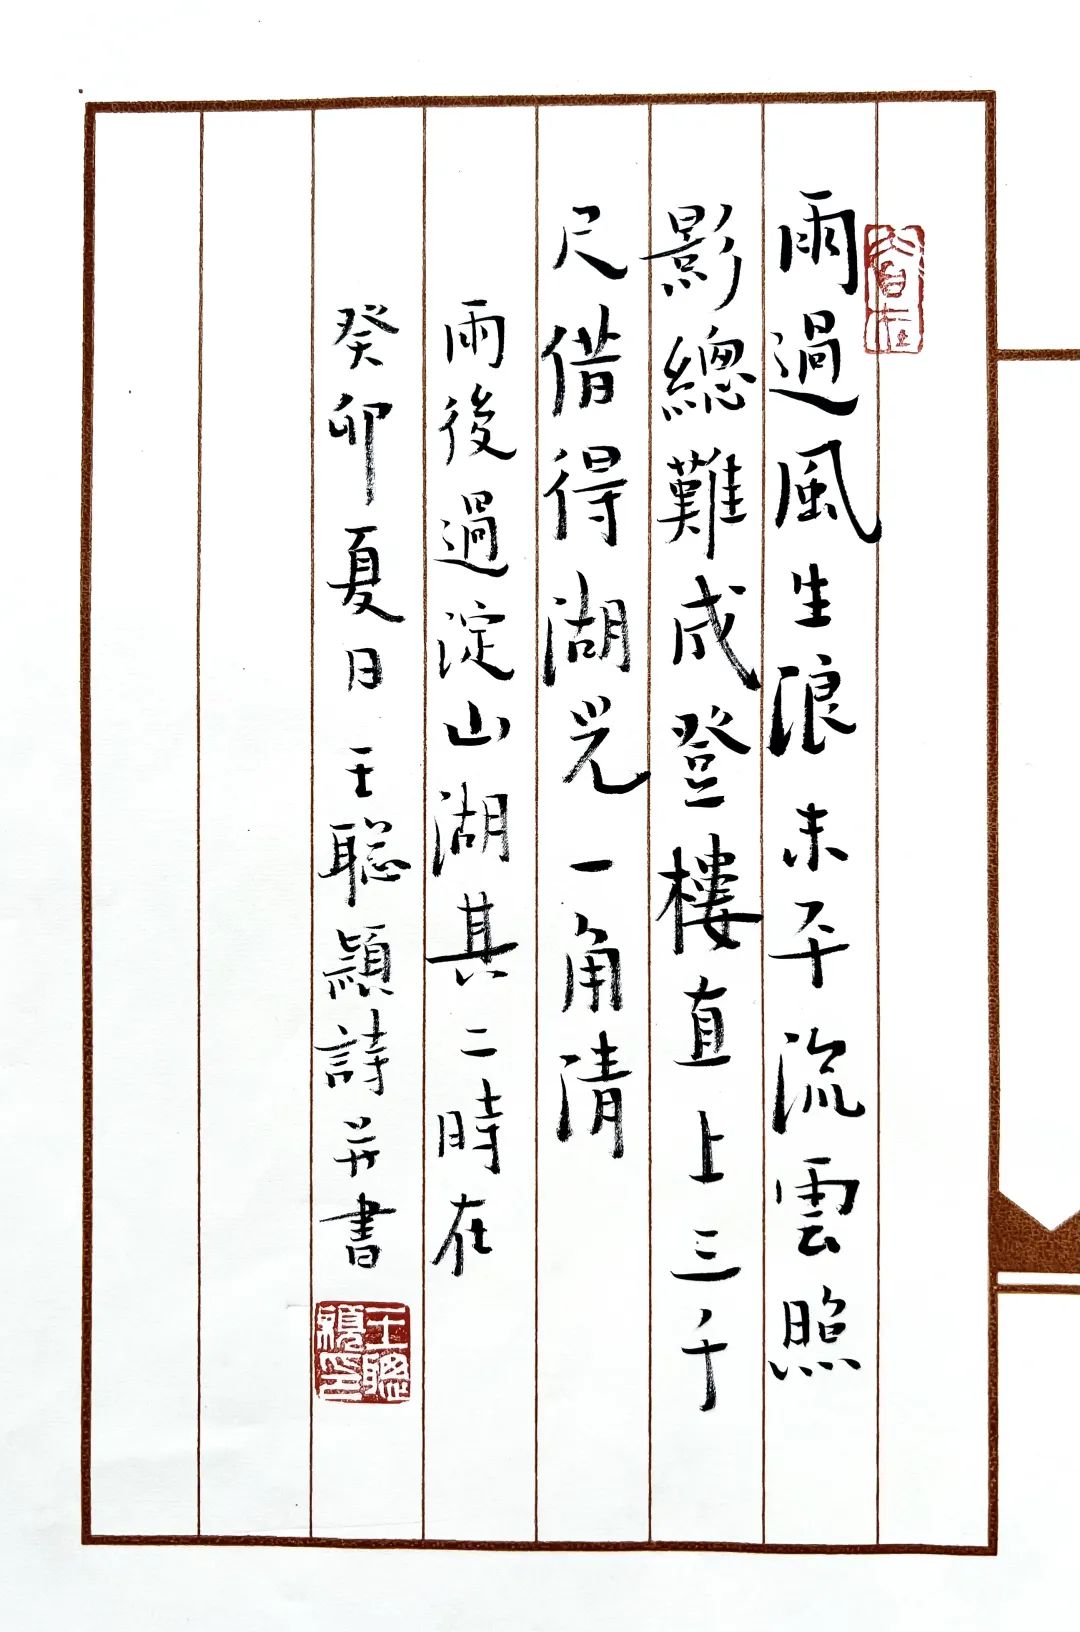 雨過風生浪未平流雲照
影總難成登樓直上三千
尺借得湖光一角清
雨後過淀山湖其二時在
癸卯夏日王聰穎詩并書
王聰穎印